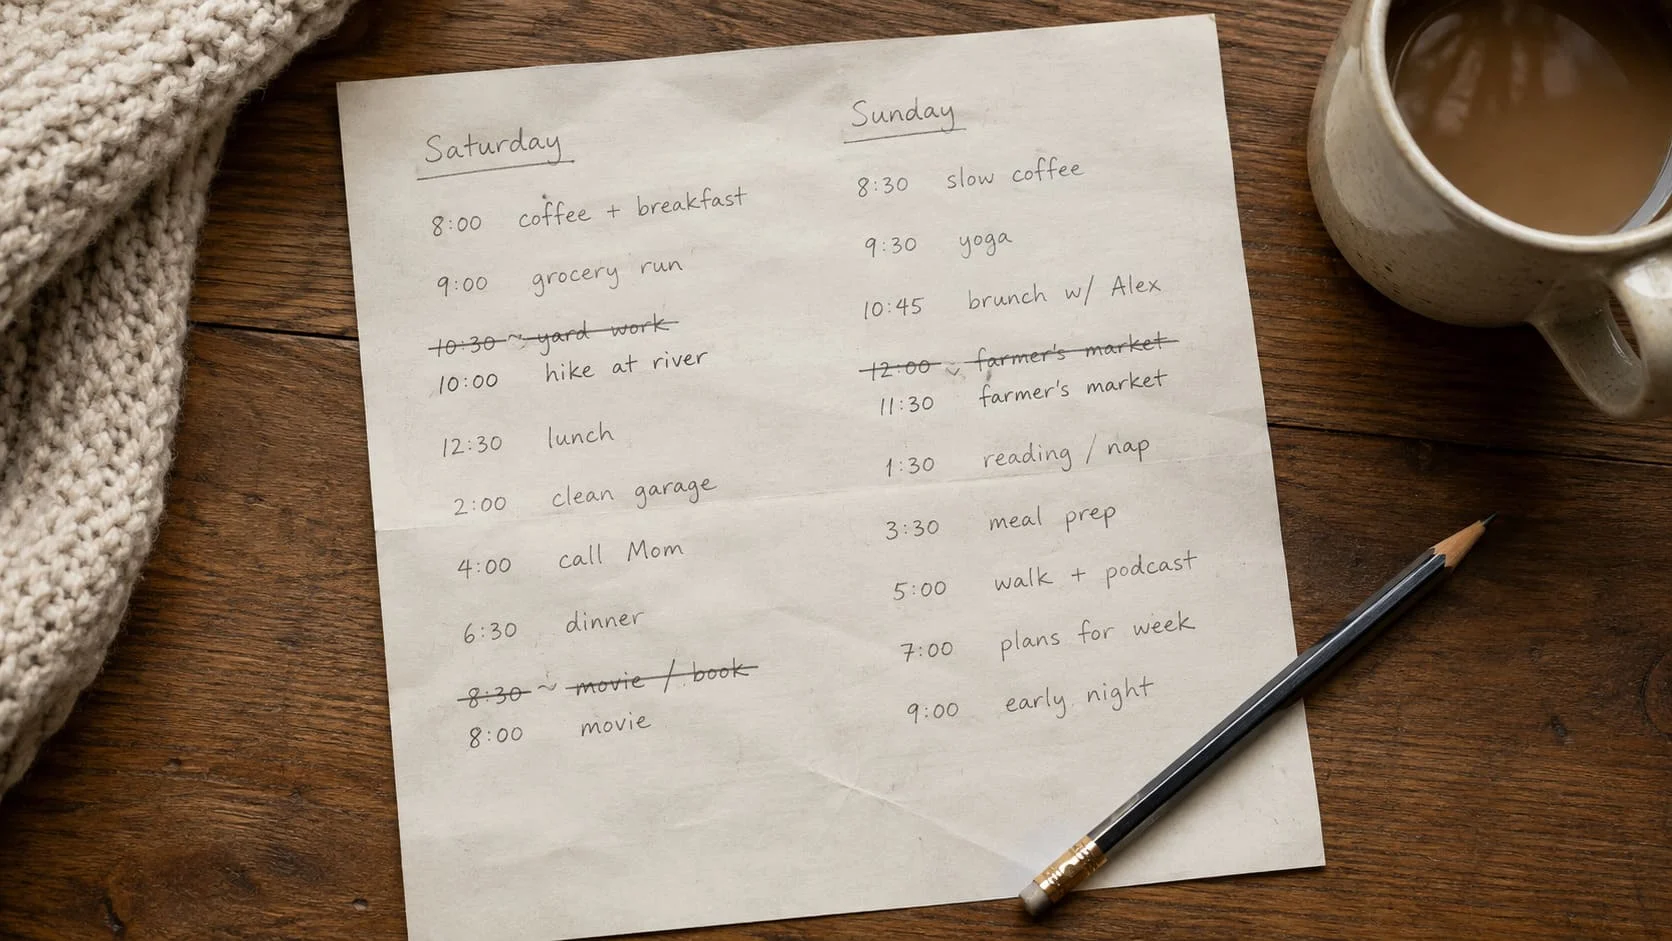 Saturday
8:00 coffee + breakfast
9:00 grocery run
10:30 ~ yard work
10:00 hike at river
12:30 lunch
2:00 clean garage
4:00 call Mom
6:30 dinner
8:30 ~ movie / book
8:00 movie
Sunday
8:30 slow coffee
9:30 yoga
10:45 brunch w/ Alex
12:00 ~ farmer's market
11:30 farmer's market
1:30 reading / nap
3:30 meal prep
5:00 walk + podcast
7:00 plans for week
9:00 early night